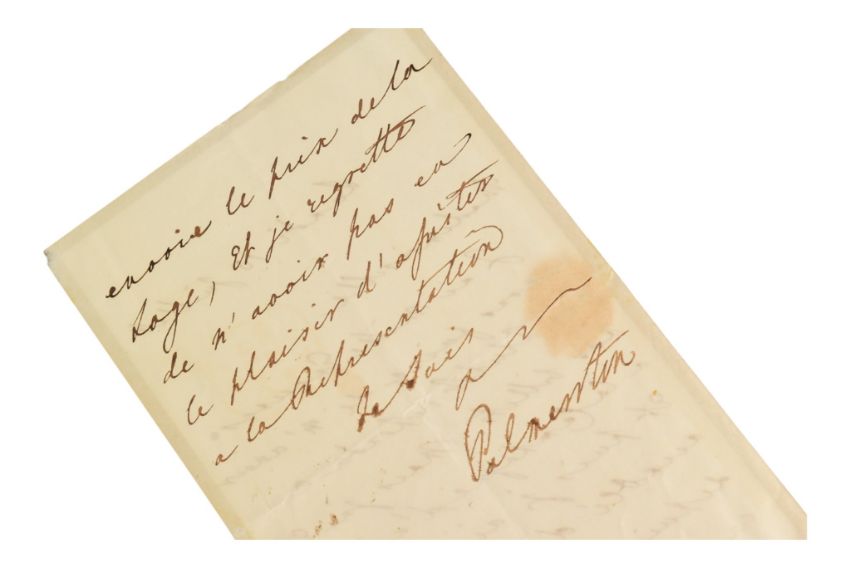 envoie le prix de la
Loge, Et je regrette
de n'avoir pas eu
le plaisir d'assister
a la Representation
Je suis
Palmerston